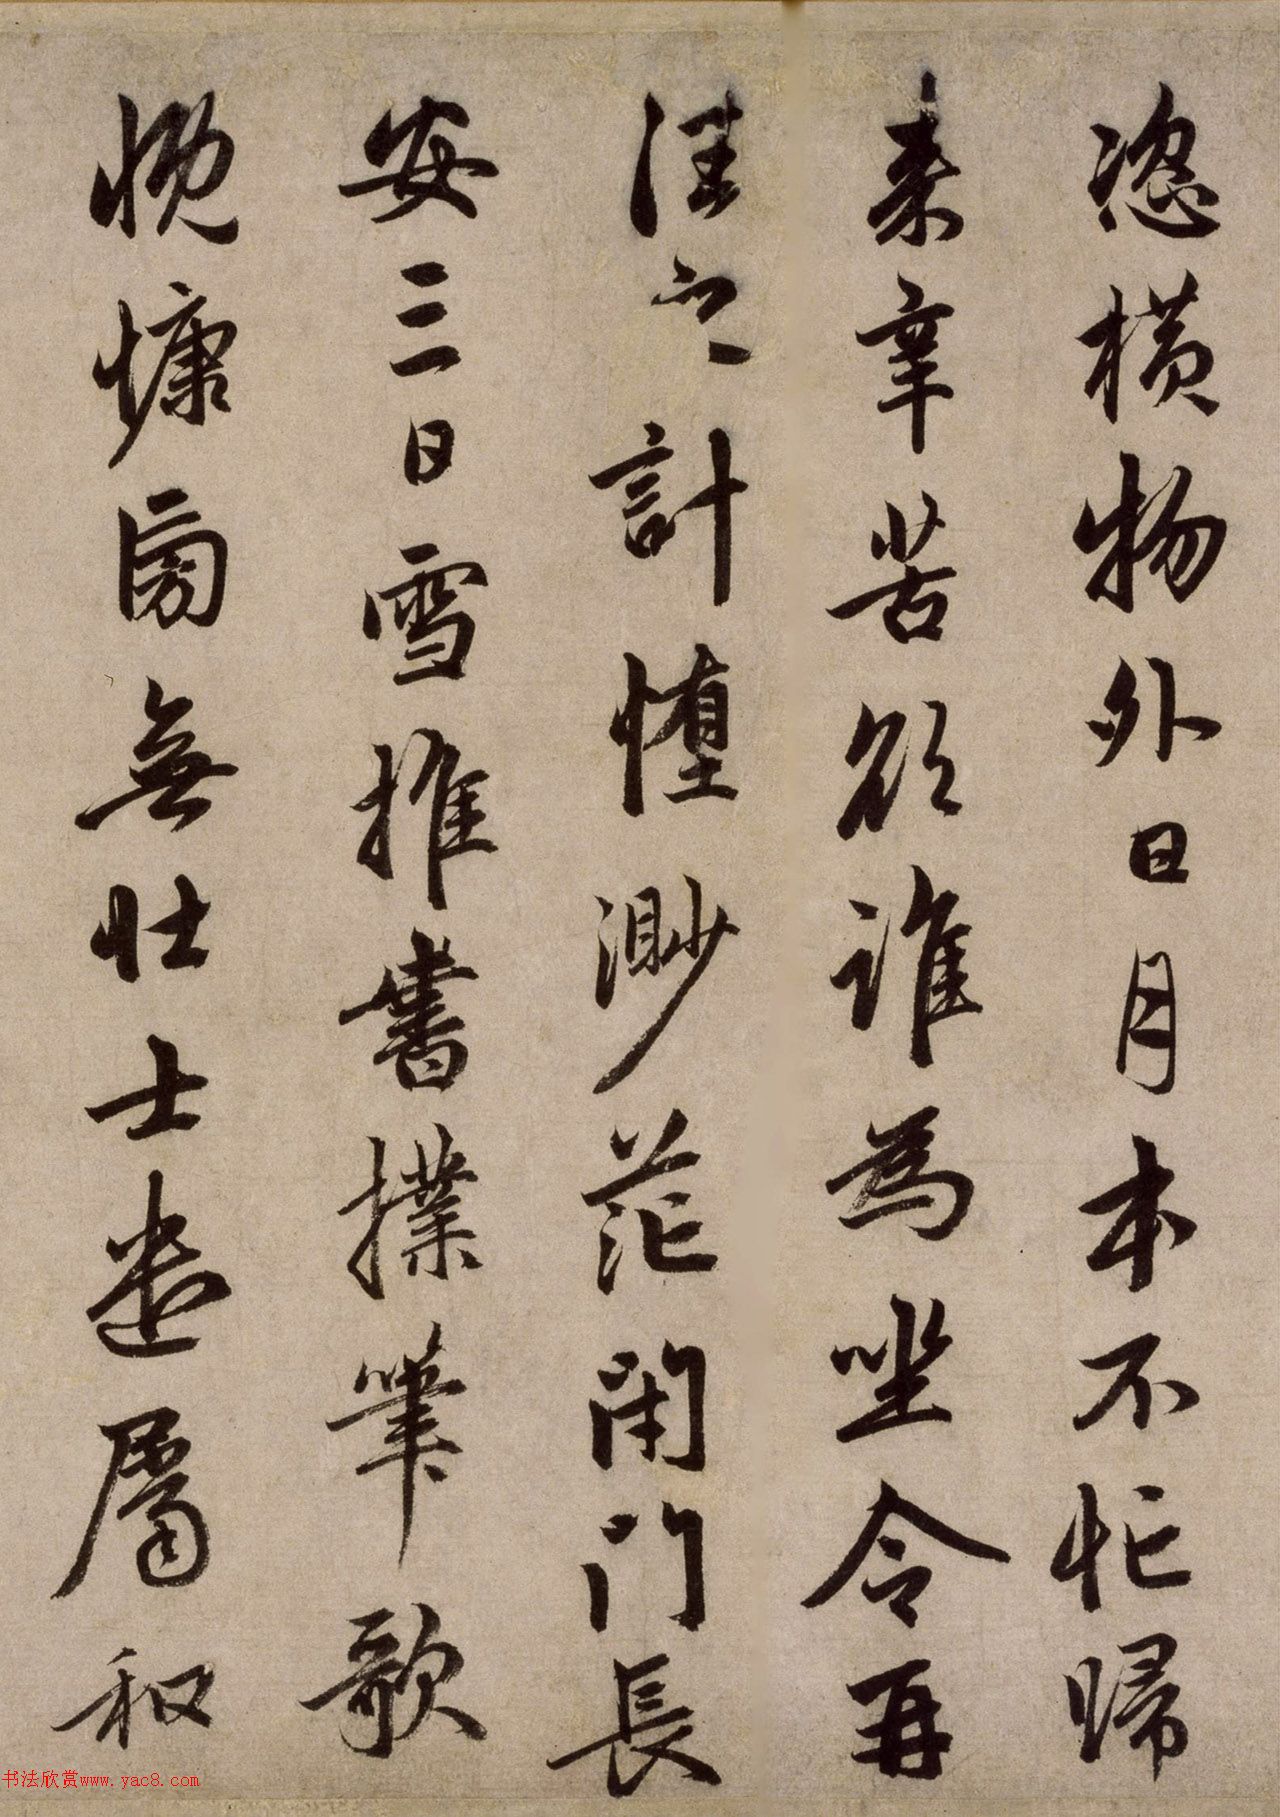 恣橫物外日月本不忙歸
來辛苦欲誰為坐令再
往之計墮渺茫閉門長
安三日雪推書撲筆歌
慨慷旁無壯士遣屬和
书法欣赏www.yac8.com